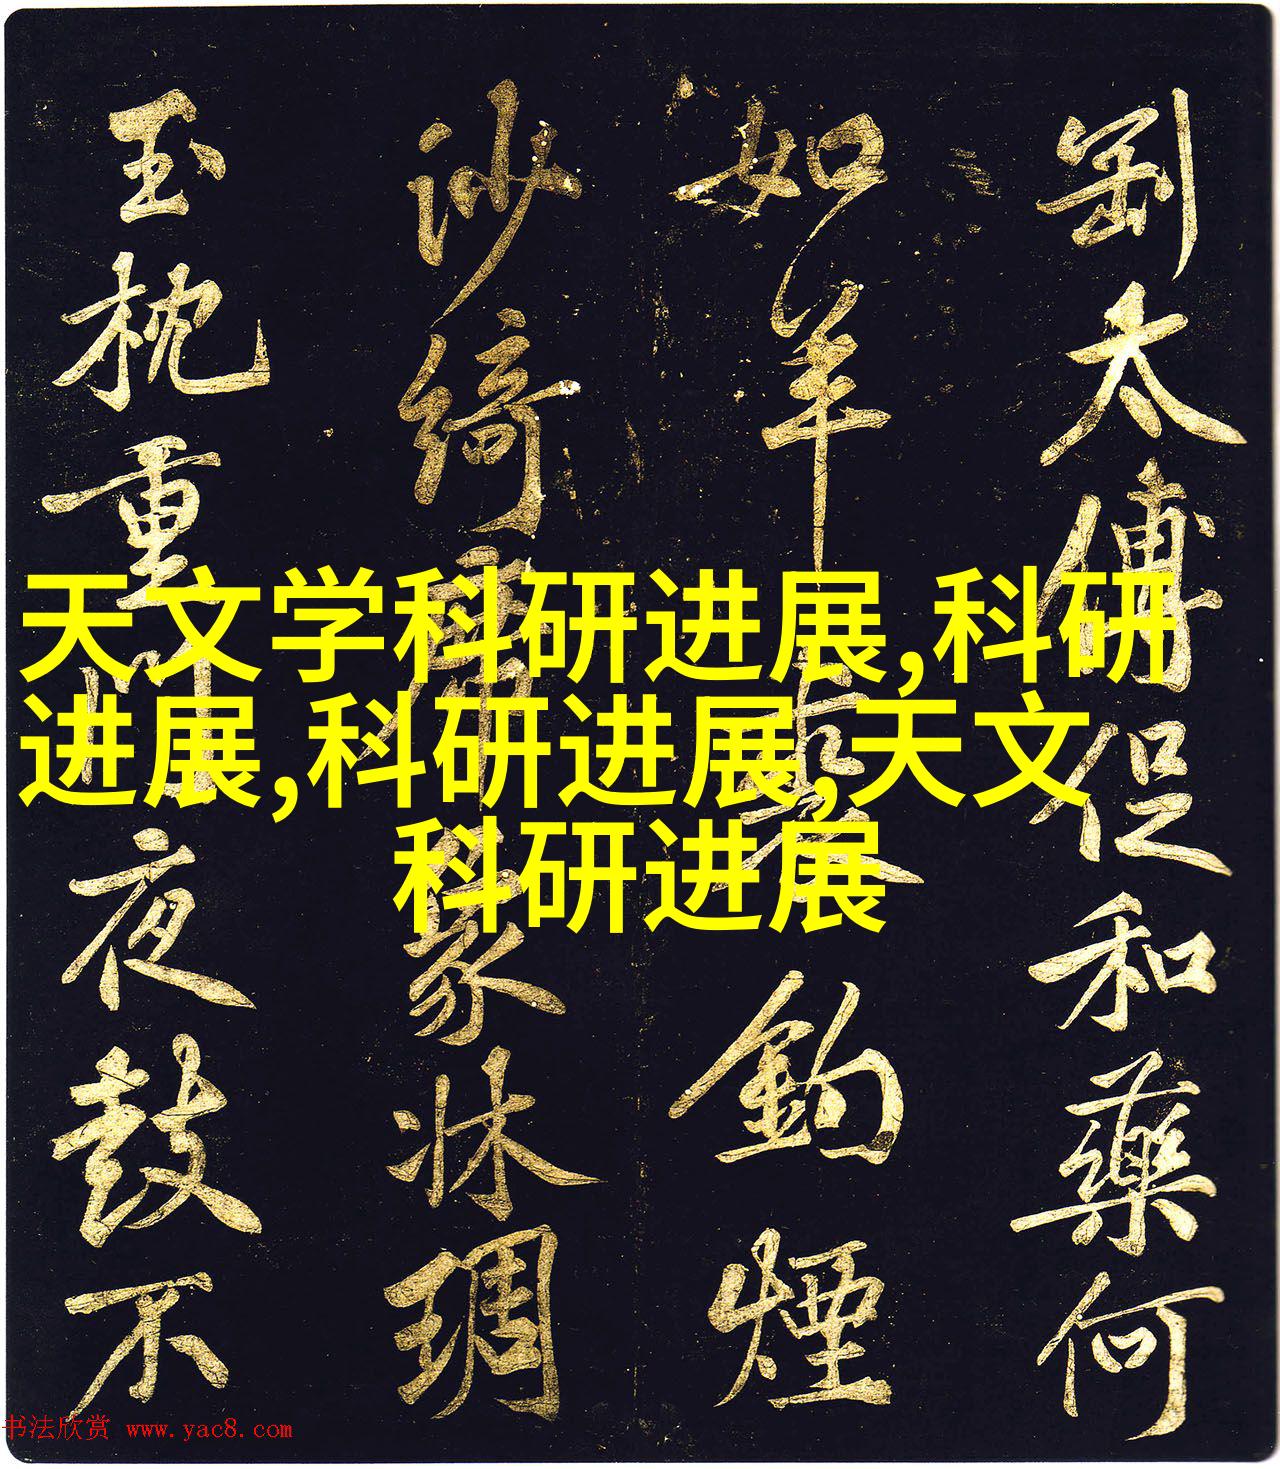 天文学科研进展,科研
进展,科研进展,天文
科研进展
太傅促和藥何
如羊鉤煙
沙綺象牀琱
玉枕重夜鼓不
书法欣赏 www.yac8.com